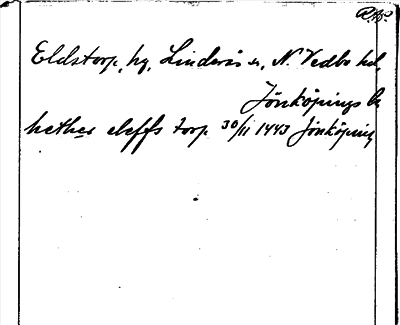 R.A.P.
Eldstorp, hg, Linderås sn, N. Vedbo hd,
Jönköpings l
hethes eleffs torp 30/11 1443 Jönköping